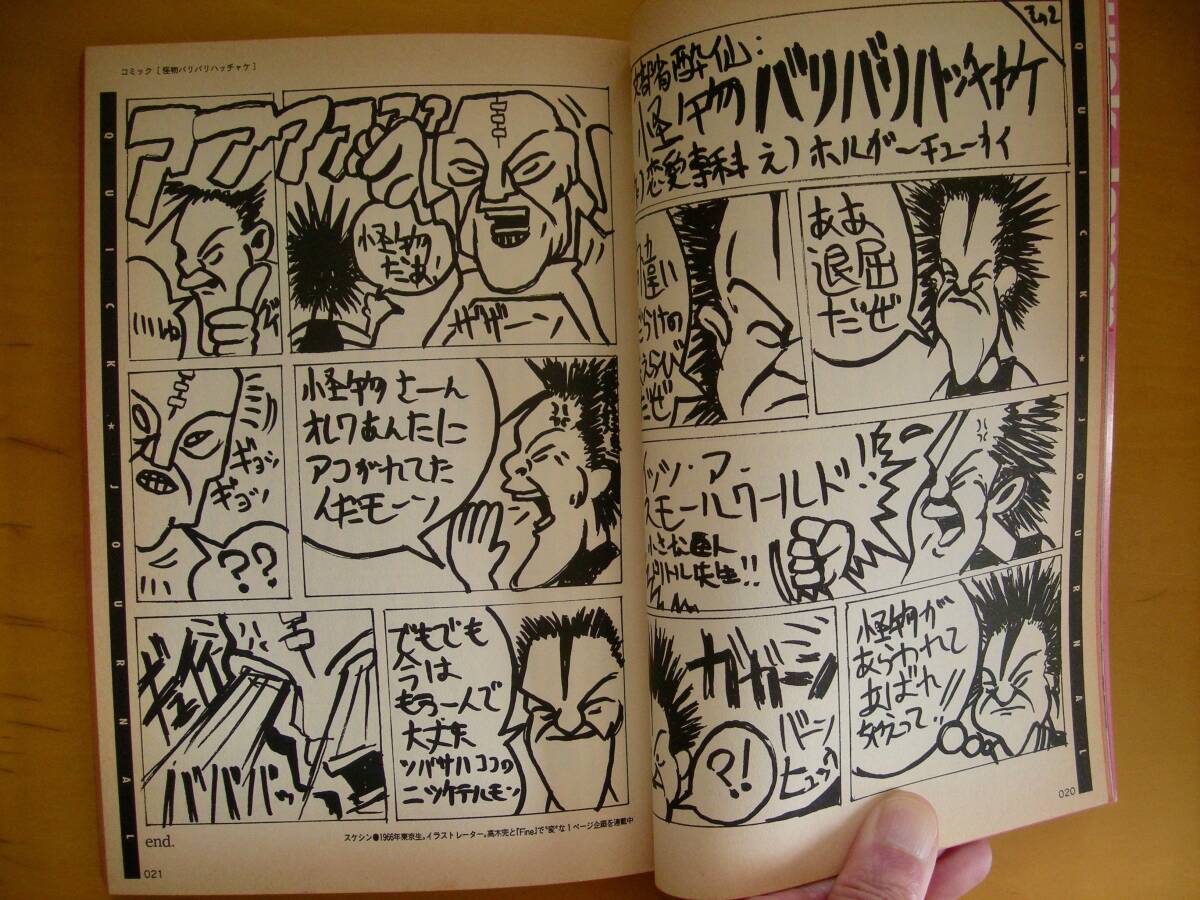 その2
酔仙:
怪物のバリバリハッチャケ
恋愛専科 え)ホルガーチューカイ
ああ
退屈
だぜ
違い
だらけの
えらび
だぜ
ッツ・ア・
スモールワールド!!
小さな巨人
リトル先生!!
怪物が
あらわれて
あばれ
ちゃえって!!
ガガーン
?!
バーン
ヒュッ
QUICK★JOURNAL
020
コミック［怪物バリバリハッチャケ］
怪物
だぁ!
ザザーン
怪物さーん
オレワあんたに
アコガれてた
んだモーン
ギョッ
ギョッ
??
でもでも
今は
もう一人で
大丈夫
ツバサハココの
ニツケテルモン
ギュイーン
バババッ
end.
スケシン●1966年東京生。イラストレーター。高木完と『Fine』で"変"な1ページ企画を連載中
QUICK★JOURNAL
021